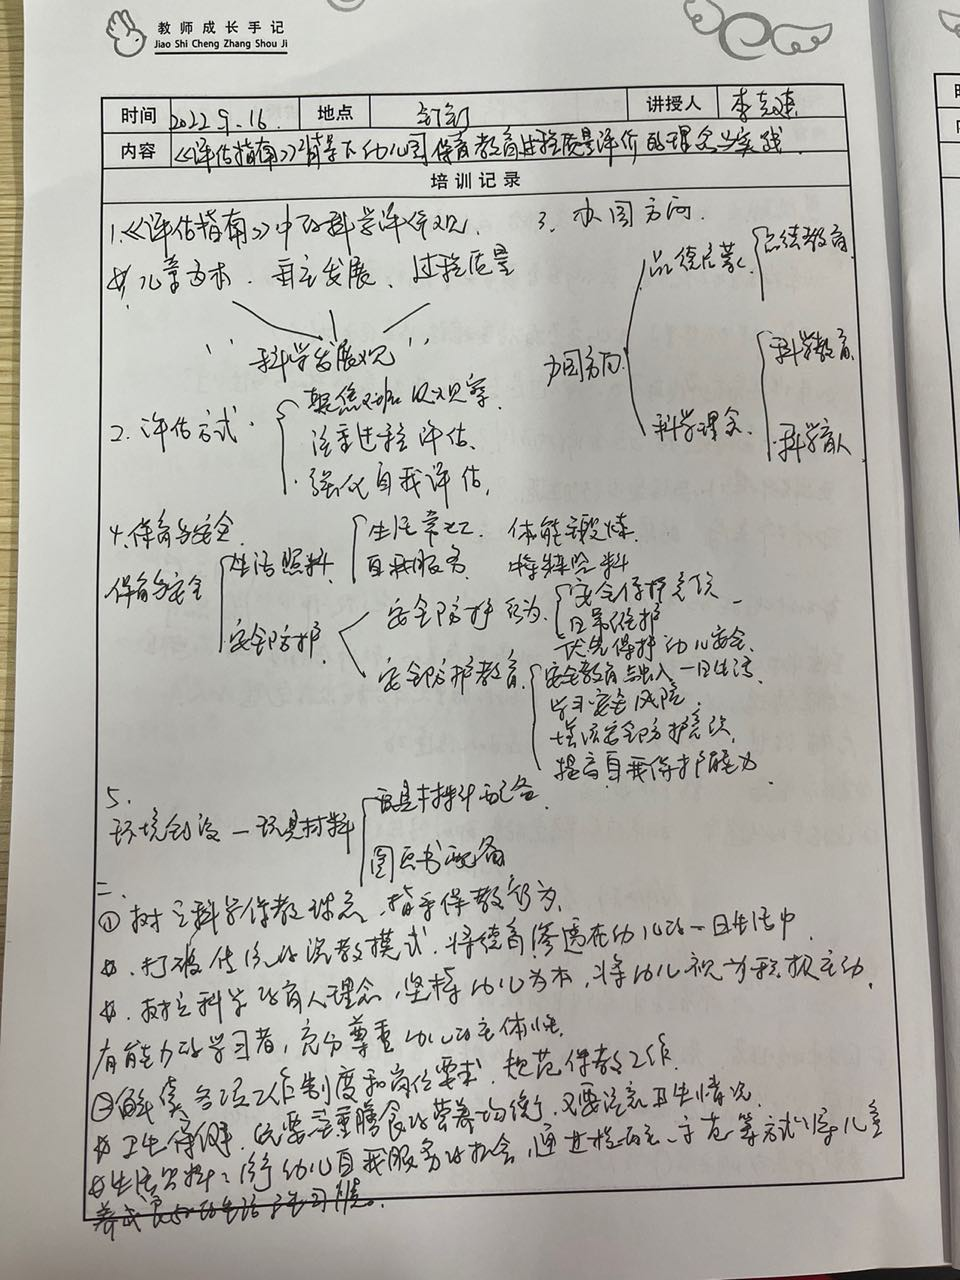 教师成长手记
Jiao Shi Cheng Zhang Shou Ji
时间 2022.9.16. 地点 钉钉 讲授人 李克建
内容 《评估指南》背景下幼儿园保育教育过程质量评价的理念与实践
培训记录
1.《评估指南》中的科学评价观.
儿童为本. 自主发展、过程质量
"科学发展观"
2. 评估方式.
聚焦班级观察.
注重过程评估.
强化自我评估.
3. 办园方向.
办园方向
品德启蒙. 品德教育
科学理念. 科学教育.
科学育人
4.保育与安全.
保育与安全
生活照料.
生活常规. 体能锻炼.
自我服务. 特殊照料
安全防护.
安全防护行为.
安全保护意识
日常维护
优先保护幼儿安全.
安全防护教育.
安全教育融入一日生活.
学习安全风险.
增强安全防护意识.
提高自我保护能力.
5.
环境创设 — 玩具材料
玩具材料配备.
图画书配备
二.
①树立科学保教理念, 指导保教行为.
打破传统的说教模式. 将德育渗透在幼儿的一日生活中.
树立科学的育人理念, 坚持幼儿为本, 将幼儿视为积极主动.
有能力的学习者, 充分尊重幼儿的主体性.
②解读各项工作制度和岗位要求. 规范保教工作.
卫生保健. 既要注重膳食的营养均衡, 又要注意卫生情况.
生活照料: 给予幼儿自我服务的机会, 通过指导、示范等方式让儿童
养成良好的生活卫生习惯。